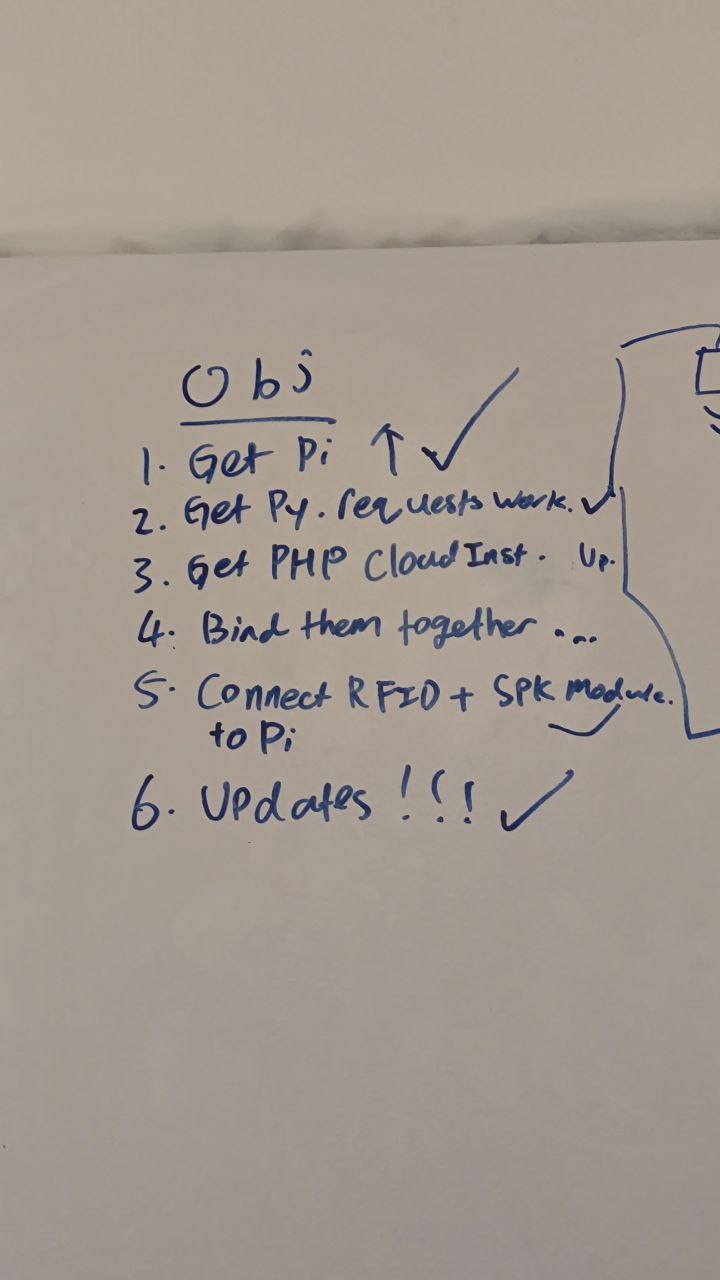 Obj
1. Get Pi ↑ ✓
2. Get Py. requests work. ✓
3. Get PHP Cloud Inst. Up.
4. Bind them together ...
5. Connect RFID + SPK Module.
to Pi ✓
6. Updates !!! ✓